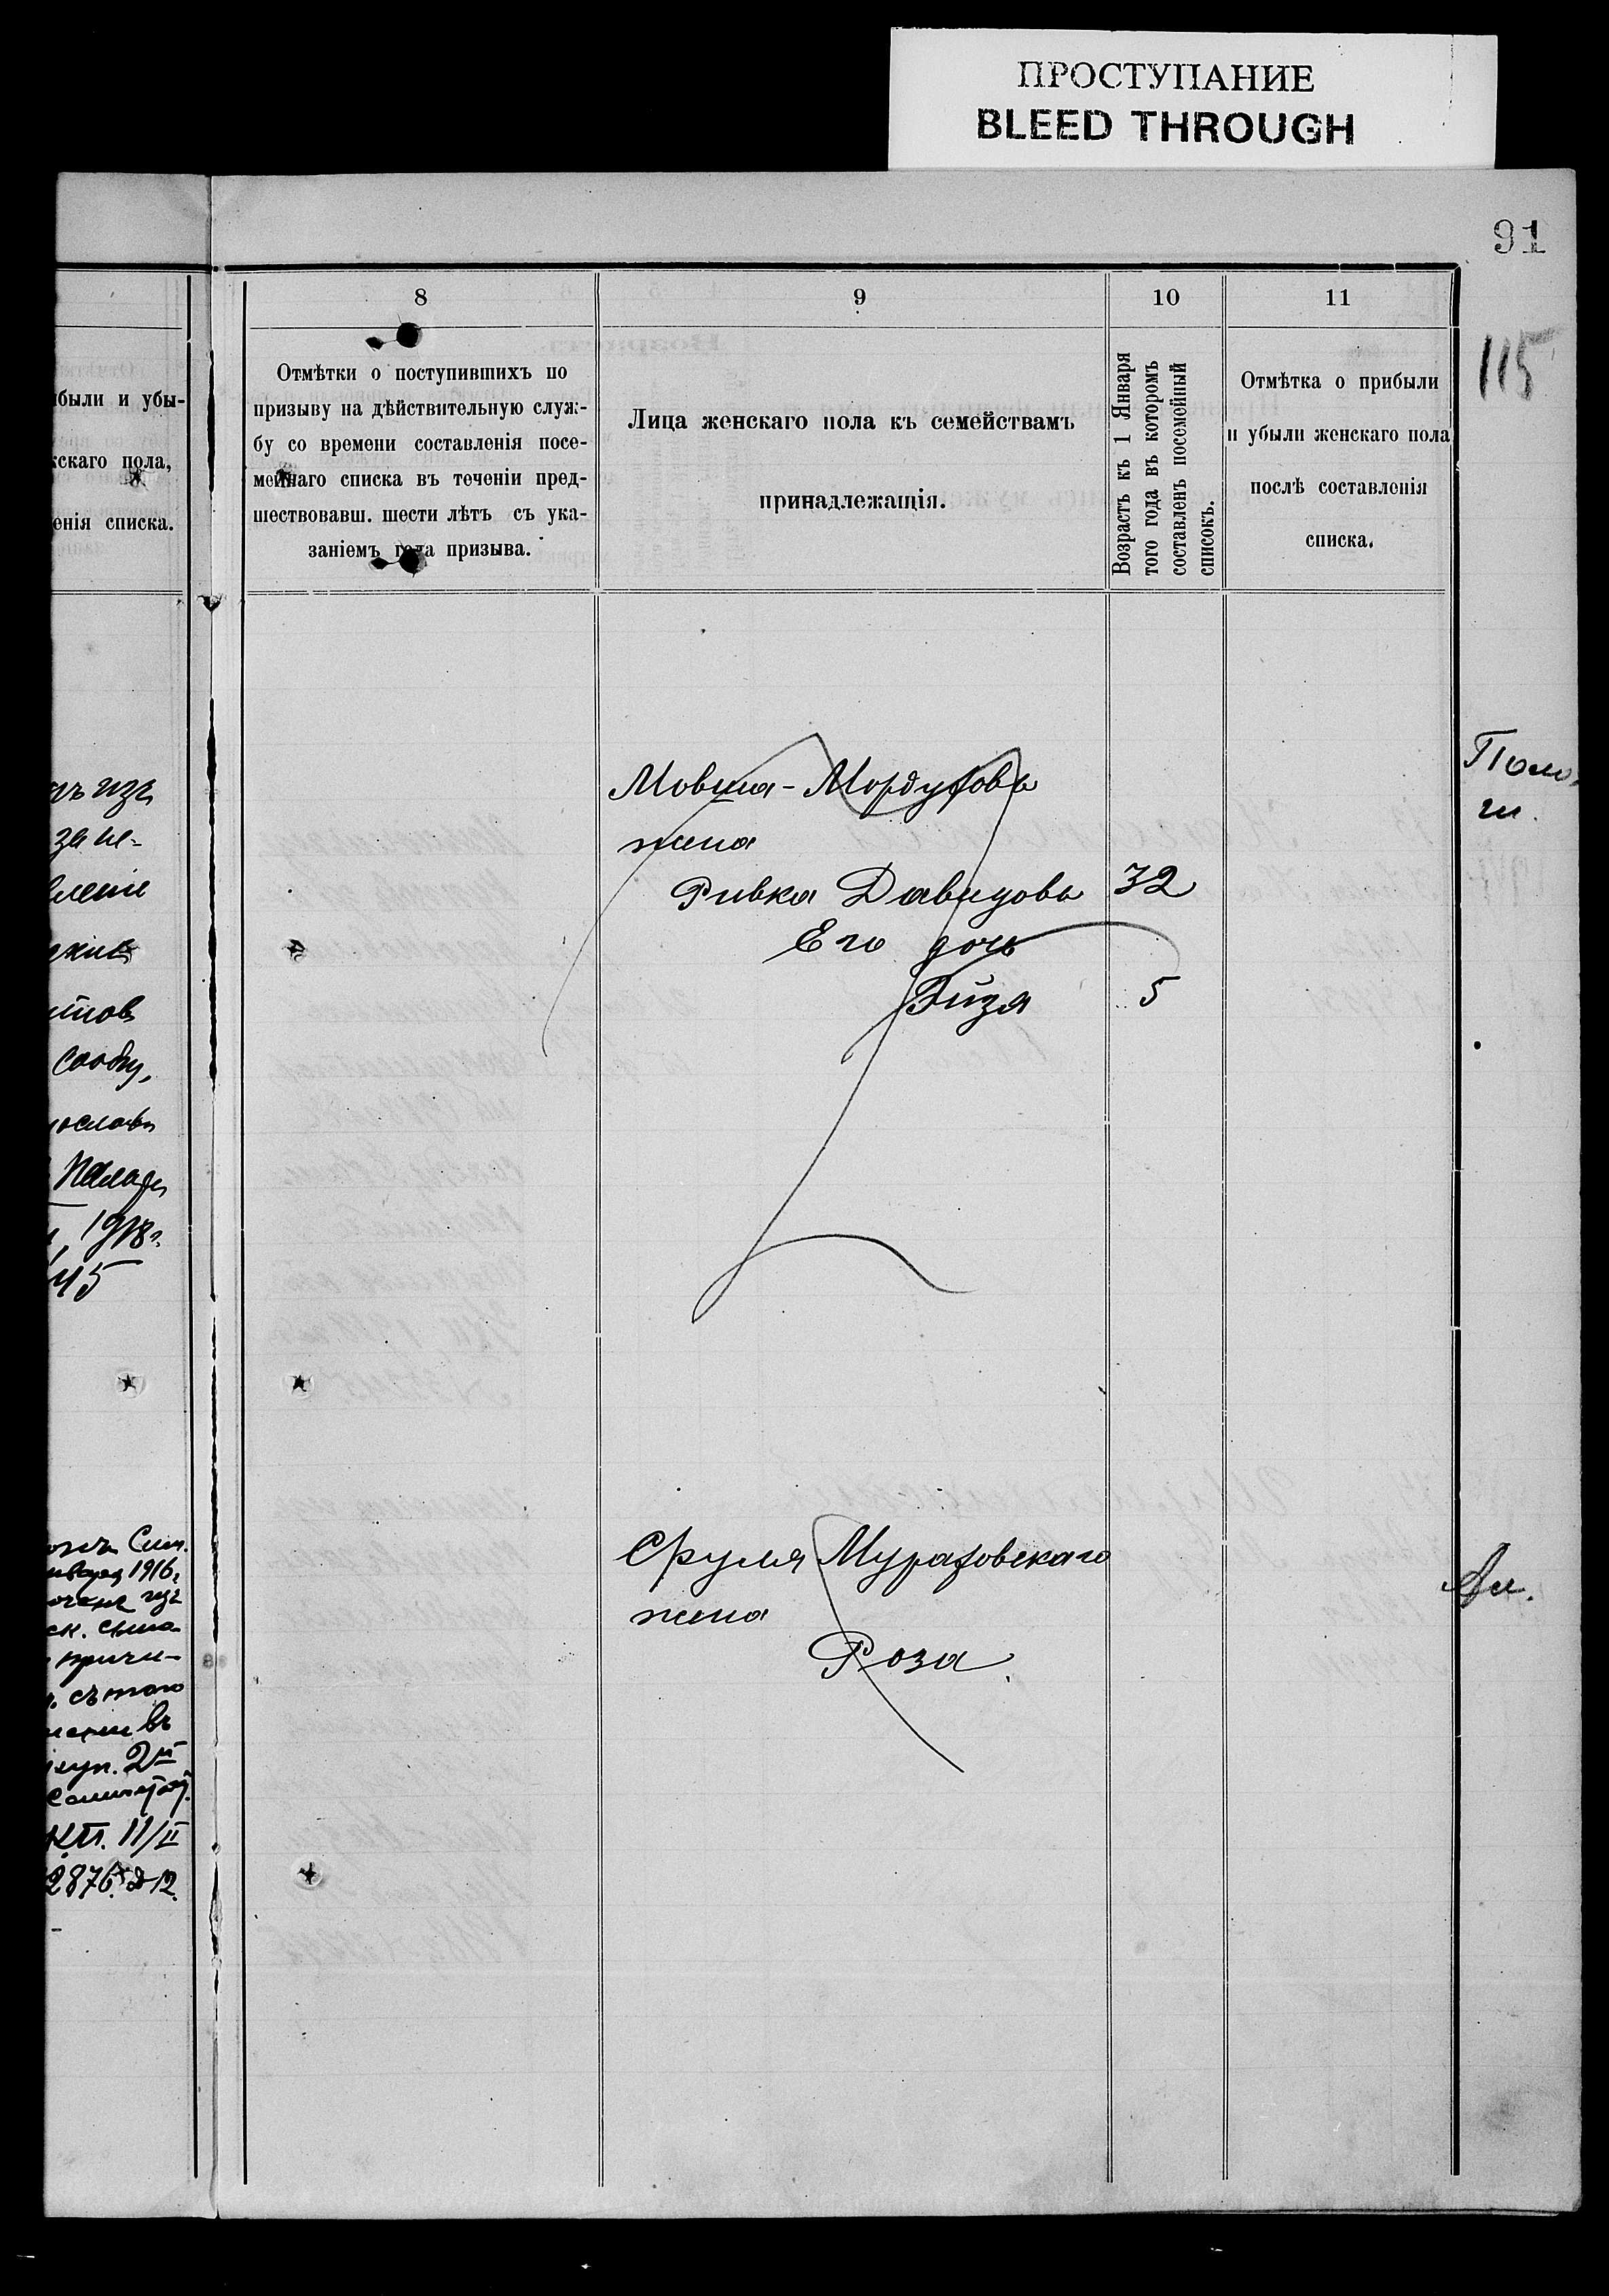 ПРОСТУПАНИЕ
BLEED THROUGH
91
115
были и убы-
скаго пола,
енія списка.
8
Отмѣтки о поступившихъ по
призыву на дѣйствительную служ-
бу со времени составленія посе-
мейнаго списка въ теченіи пред-
шествовавш. шести лѣтъ съ ука-
заніемъ года призыва.
9
Лица женскаго пола къ семействамъ
принадлежащія.
10
Возрастъ къ 1 Января
того года въ которомъ
составленъ посемейный
списокъ.
11
Отмѣтка о прибыли
и убыли женскаго пола
послѣ составленія
списка.
Мовша-Мордухова
жена
Ривка Давидова 32
Его дочь
Ейзя 5
Сруля Мураховскаго
жена
Роза
изъ
за не-
вленіе
Сообщ,
Палаты
1918г.
45
1916г
изъ
сына
причи-
съ того
въ
2й
К.П. 11/II
2876. д 12.